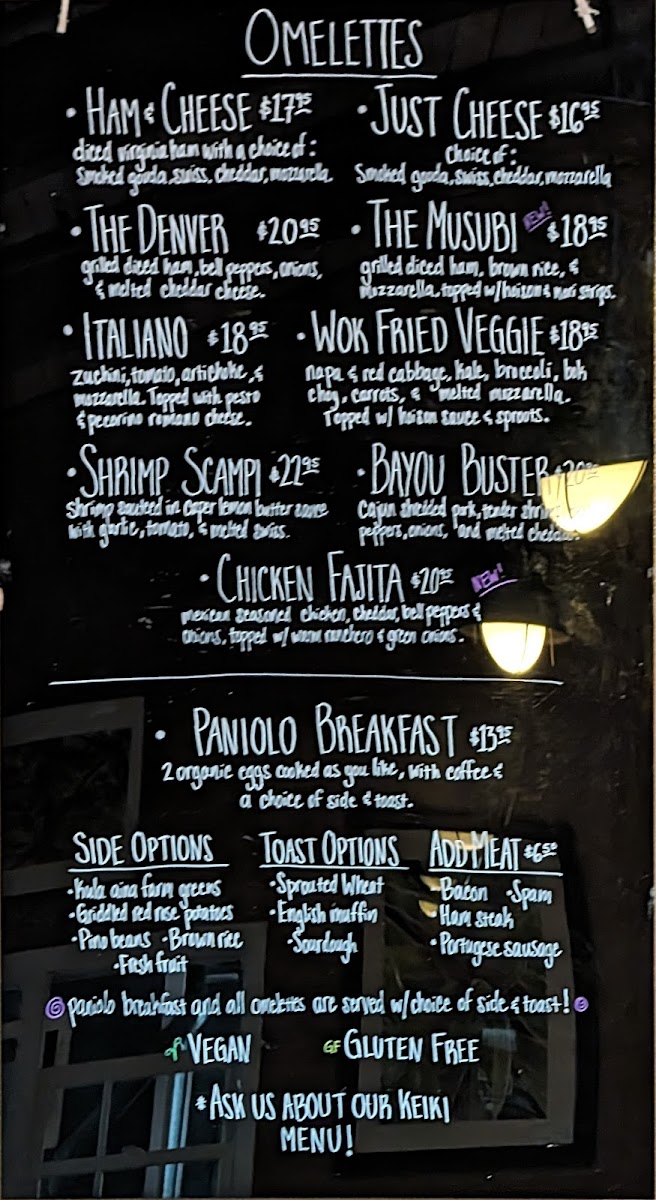 OMELETTES
• HAM & CHEESE $17.95
diced virginia ham with a choice of:
Smoked gouda, swiss, cheddar, mozzarella.
• JUST CHEESE $16.95
Choice of:
Smoked gouda, swiss, cheddar, mozzarella
• THE DENVER $20.95
grilled diced ham, bell peppers, onions,
& melted cheddar cheese.
• THE MUSUBI NEW! $18.95
grilled diced ham, brown rice, &
Mozzarella. topped w/ hoison & nori strips.
• ITALIANO $18.95
Zuchini, tomato, artichoke, &
mozzarella. Topped with pesto
& pecorino romano cheese.
• WOK FRIED VEGGIE $18.95
napa & red cabbage, kale, broccoli, bok
choy, carrots, & melted mozzarella.
Topped w/ hoison sauce & sprouts.
• SHRIMP SCAMPI $22.95
Shrimp sauteed in caper lemon butter sauce
with garlic, tomato, & melted swiss.
• BAYOU BUSTER $20
Cajun shredded pork, tender shrimp
peppers, onions, and melted cheddar.
• CHICKEN FAJITA $20.95 NEW!
mexican seasoned chicken, cheddar, bell peppers &
onions, topped w/ warm ranchero & green onions.
• PANIOLO BREAKFAST $13.95
2 organic eggs cooked as you like, with coffee &
a choice of side & toast.
SIDE OPTIONS
• Kula aina farm greens
• Griddled red rose potatoes
• Pino beans • Brown rice
• Fresh fruit
TOAST OPTIONS
• Sprouted Wheat
• English muffin
• Sourdough
ADD MEAT $6.50
• Bacon • Spam
• Ham steak
• Portugese sausage
paniolo breakfast and all omelettes are served w/ choice of side & toast!
VEGAN
GF GLUTEN FREE
*ASK US ABOUT OUR KEIKI
MENU!